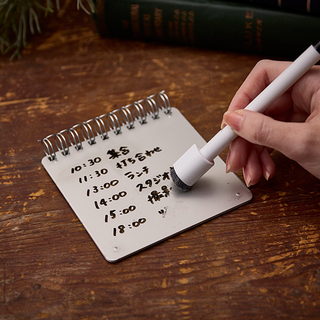 10:30 集合
11:30 打ち合わせ
13:00 ランチ
14:00 スタジオ
15:00 撮影
18:00 〃